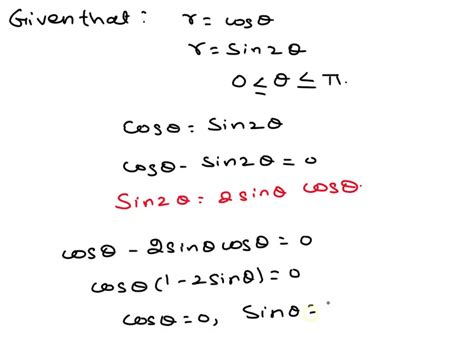 Given that: r = cosθ
r = sin2θ
0 ≤ θ ≤ π.
cosθ = sin2θ
cosθ - sin2θ = 0
Sin2θ = 2sinθ cosθ.
cosθ - 2sinθcosθ = 0
cosθ(1-2sinθ) = 0
cosθ = 0, Sinθ =